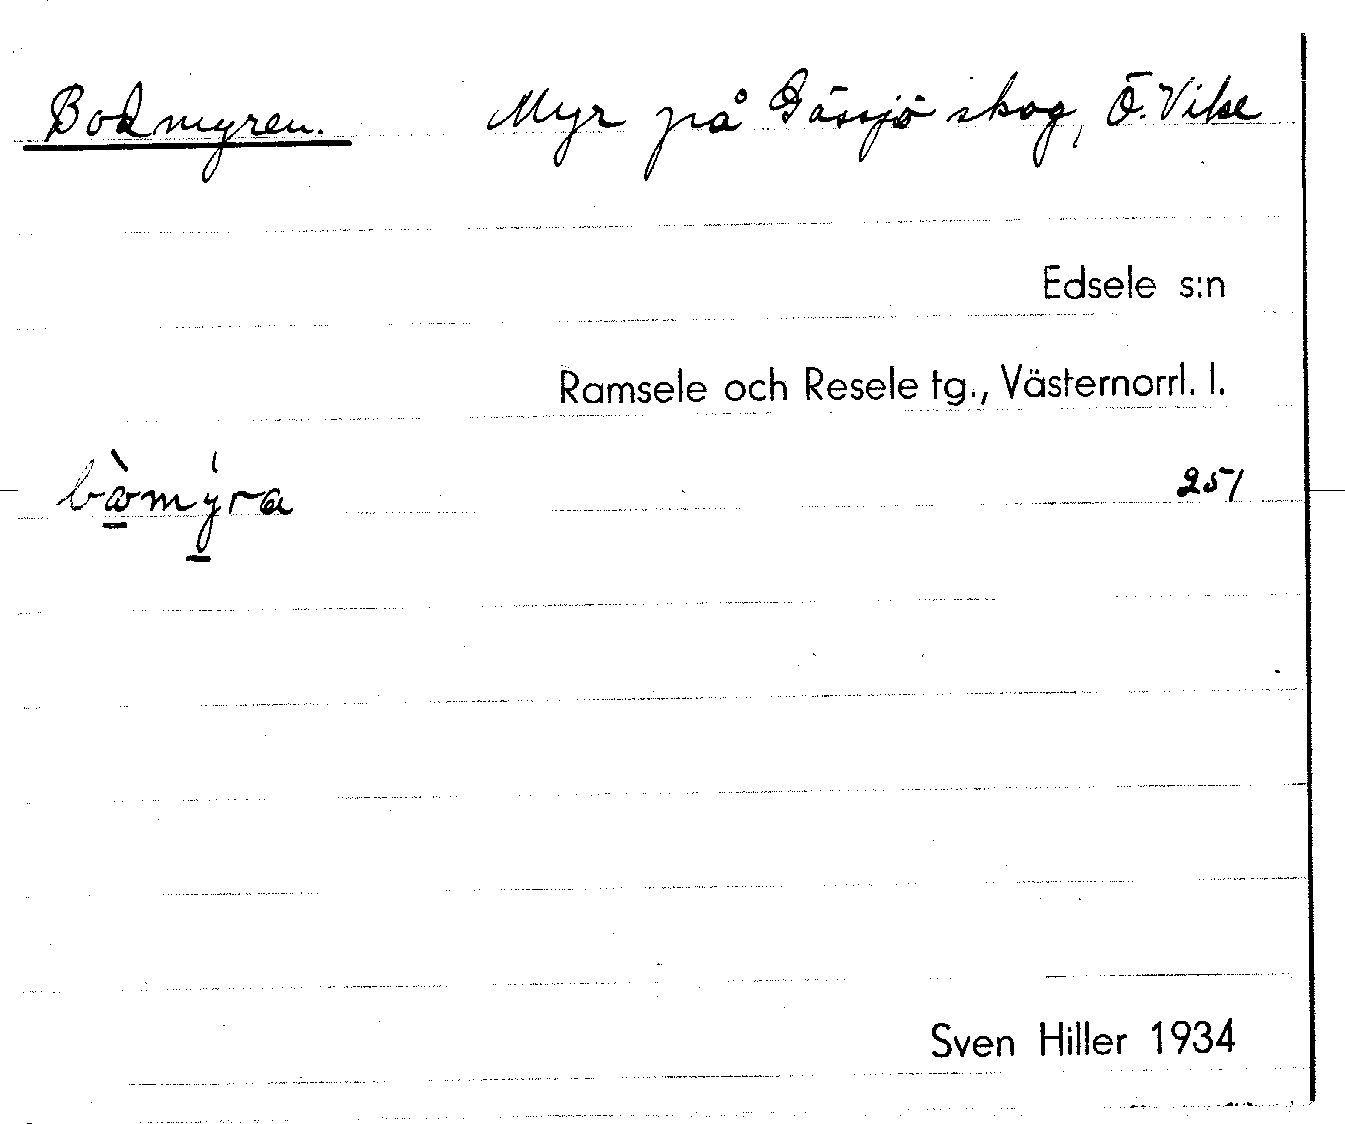 Bodmyren. Myr på Gässjö skog, Ö. Vike
Edsele s:n
Ramsele och Resele tg., Västernorrl. l.
251
Sven Hiller 1934